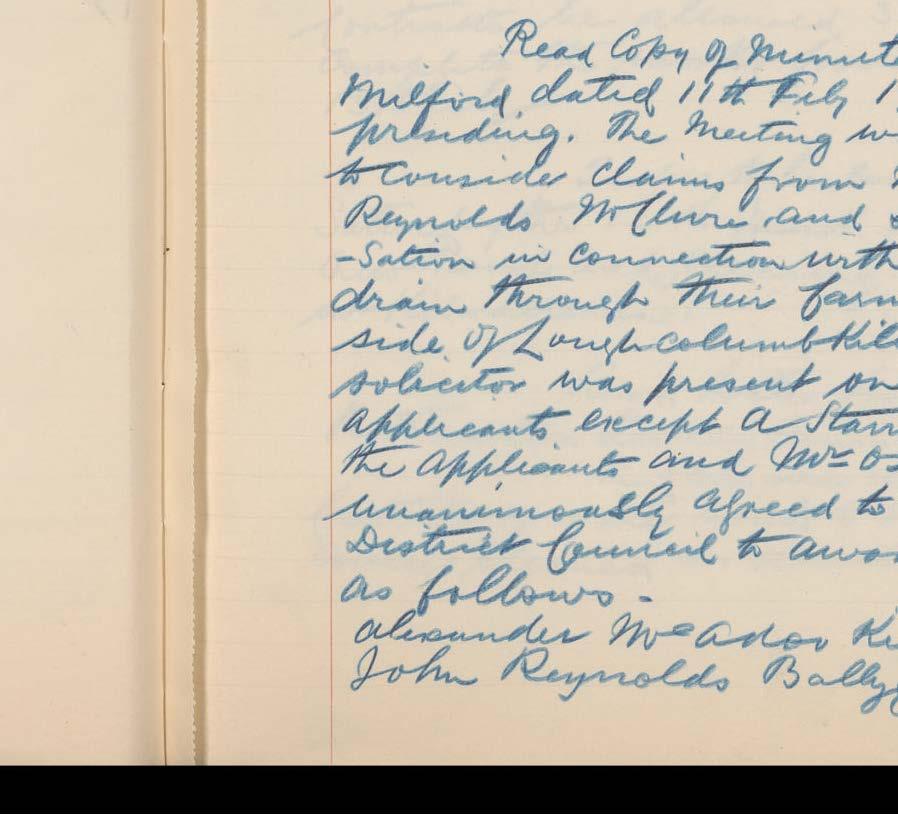 Read Copy of Minut
Milford dated 11th Feby 1
presiding. The Meeting w
to consider claims from
Reynolds McClure and
-sation in connection with
drain through their farm
side of Lough columbkill
solicitor was present on
applicants except A Starr
the applicants and Mr O
unanimously agreed to
District Council to awa
as follows -
alexander McAdoo Ki
John Reynolds Bally